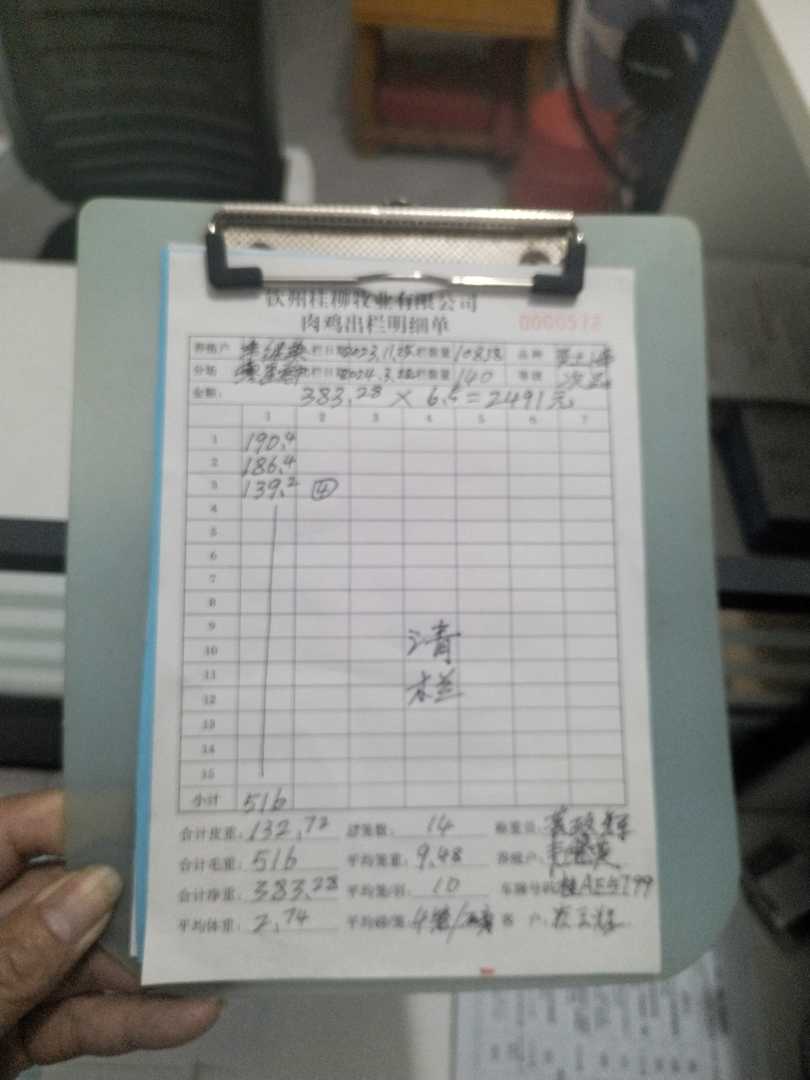 钦州桂柳牧业有限公司
肉鸡出栏明细单 0000512
养殖户 栏日期 2023.11.25 栏数量 10858 品种
分场 栏日期 2024.3 栏数量 140 等级 次品
金额: 383.28 × 6.5 = 2491元
1 2 3 4 5 6 7
1 190.4
2 186.4
3 139.2 ④
4
5
6
7
8
9 清
10
11 栏
12
13
14
15
小计 516
合计皮重: 132.72 总笼数: 14 称重员:
合计毛重: 516 平均笼重: 9.48 养殖户:
合计净重: 383.28 平均笼/羽: 10 车牌号码: 桂AE5799
平均体重: 2.74 平均磅/笼: 4笼/磅 客 户: